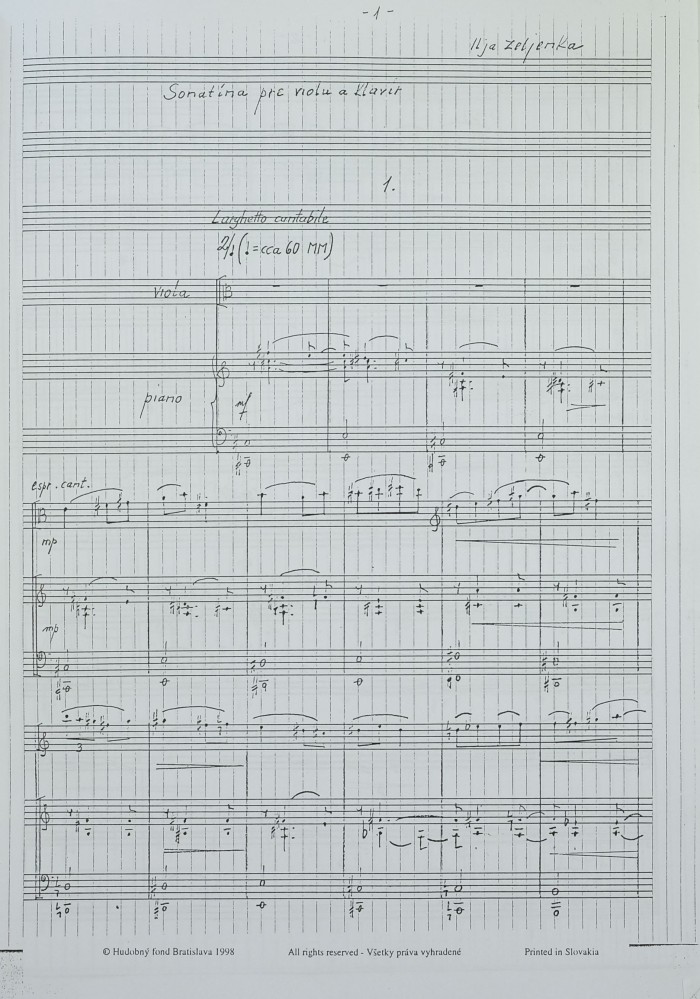 - 1 -
Ilja Zeljenka
Sonatína pre violu a klavír
1.
Larghetto cantabile
2/♩ (♩=cca 60 MM)
viola
piano
mf
espr. cant.
mp
mp
3
© Hudobný fond Bratislava 1998 All rights reserved - Všetky práva vyhradené Printed in Slovakia